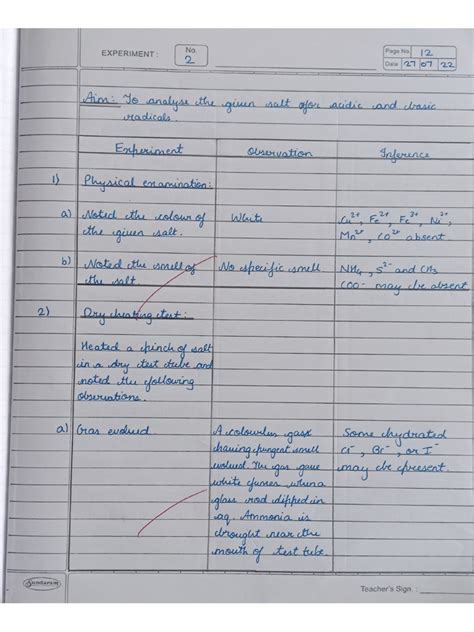 EXPERIMENT :
No.
2
Page No. 12
Date 27 07 22
Aim: To analyse the given salt for acidic and basic
radicals.
Experiment Observation Inference
1) Physical examination:
a) Noted the colour of White Cu²⁺, Fe²⁺, Fe³⁺, Ni²⁺,
the given salt. Mn²⁺, CO²⁺ absent.
b) Noted the smell of No specific smell NH₄, S²⁻ and CH₃
the salt. COO⁻ may be absent.
2) Dry heating test:
Heated a pinch of salt
in a dry test tube and
noted the following
observations.
a) Gas evolved A colourless gas Some hydrated
having pungent smell Cl⁻, Br⁻, or I⁻
evolved. The gas gave may be present.
white fumes when a
glass rod dipped in
aq. Ammonia is
brought near the
mouth of test tube.
Sundaram
Teacher's Sign. :